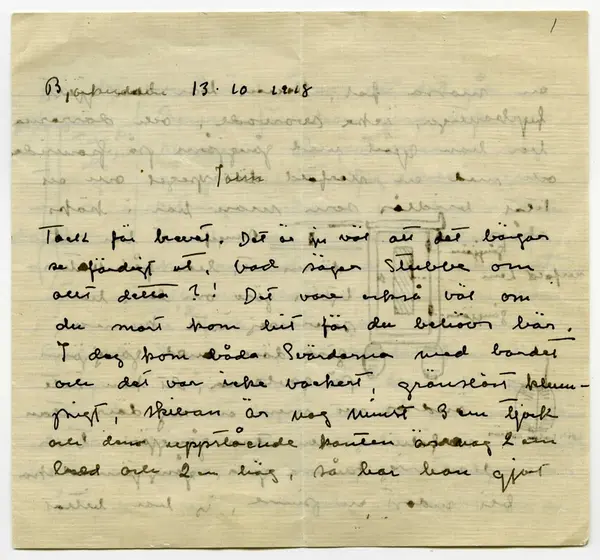 1
13.10.1918
Tack för brevet. Det är ju väl att det börjar
se färdigt ut, vad säger Stubbe om
allt detta?! Det vore också väl om
du snart kom hit för du behövs här.
I dag kom båda Svärderna med bordet
och det var icke vackert, gränslöst klum-
pigt, skivan är nog minst 3 cm tjock
och den uppstående kanten är nog 2 cm
bred och 2 cm hög, så har han gjort